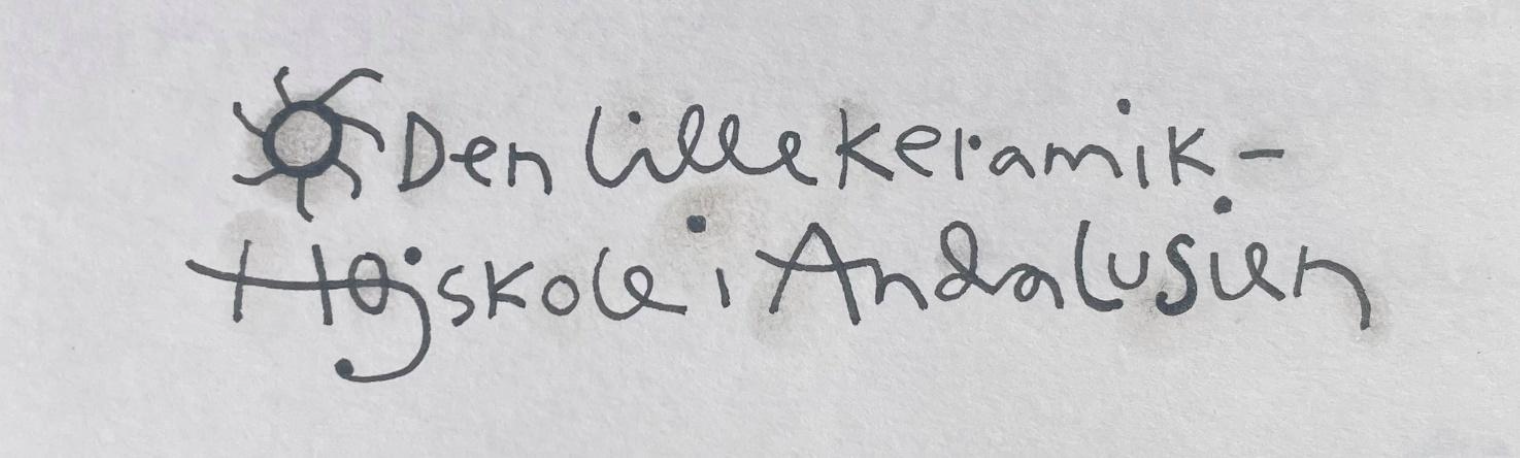 Den lille keramik-
Højskole i Andalusien